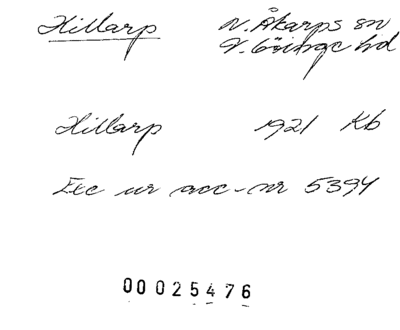 Hillarp N. Åkarps sn
V. Göinge hd
Hillarp 1921 Kb
Exc ur acc-nr 5394
00025476